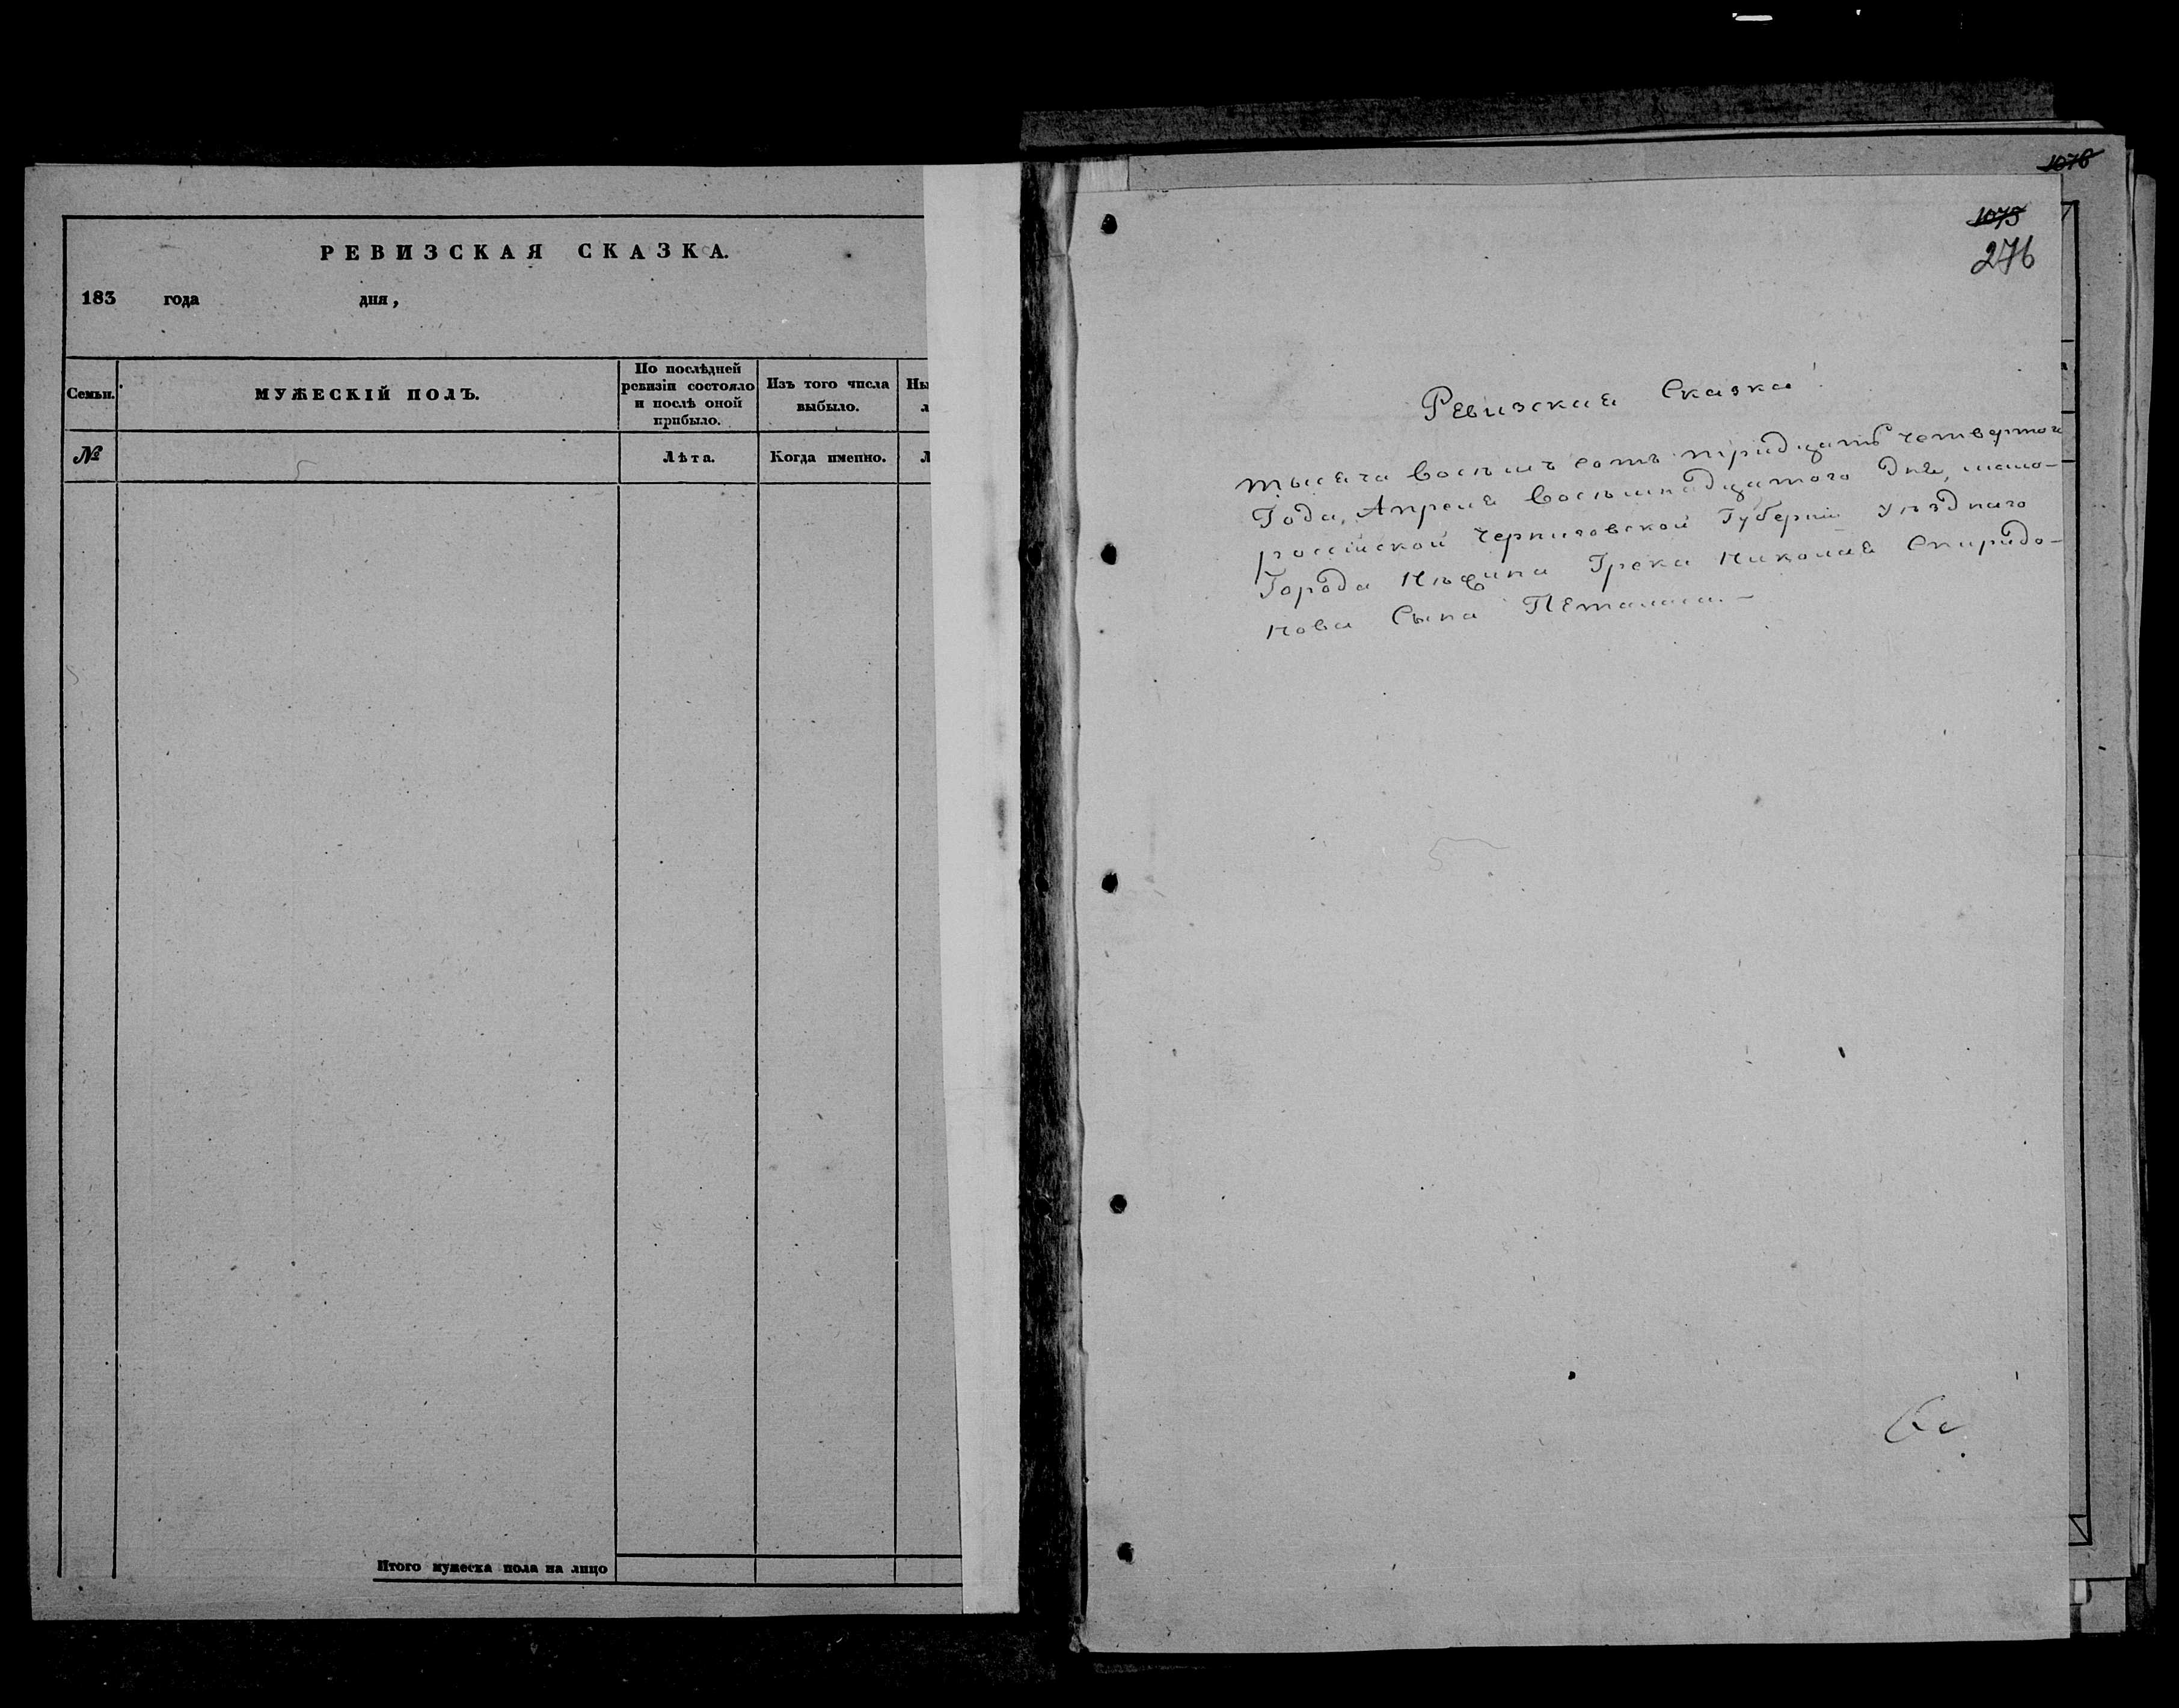 РЕВИЗСКАЯ СКАЗКА.
183 года дня,
Семьи.
МУЖЕСКІЙ ПОЛЪ.
По послѣдней
ревизіи состояло
и послѣ оной
прибыло.
Изъ того числа
выбыло.
№
Лѣта.
Когда именно.
Итого мужеска пола на лицо
1076
1075
276
Ревизская Сказка
тысяча восемъ сотъ тридцать четвертого
Года, Апреля восемнадцатого дня, мало-
россійской Черниговской Губерніи уѣзднаго
Города Нѣжина Грека Николая Спиридо-
нова Сына Петаласа.—